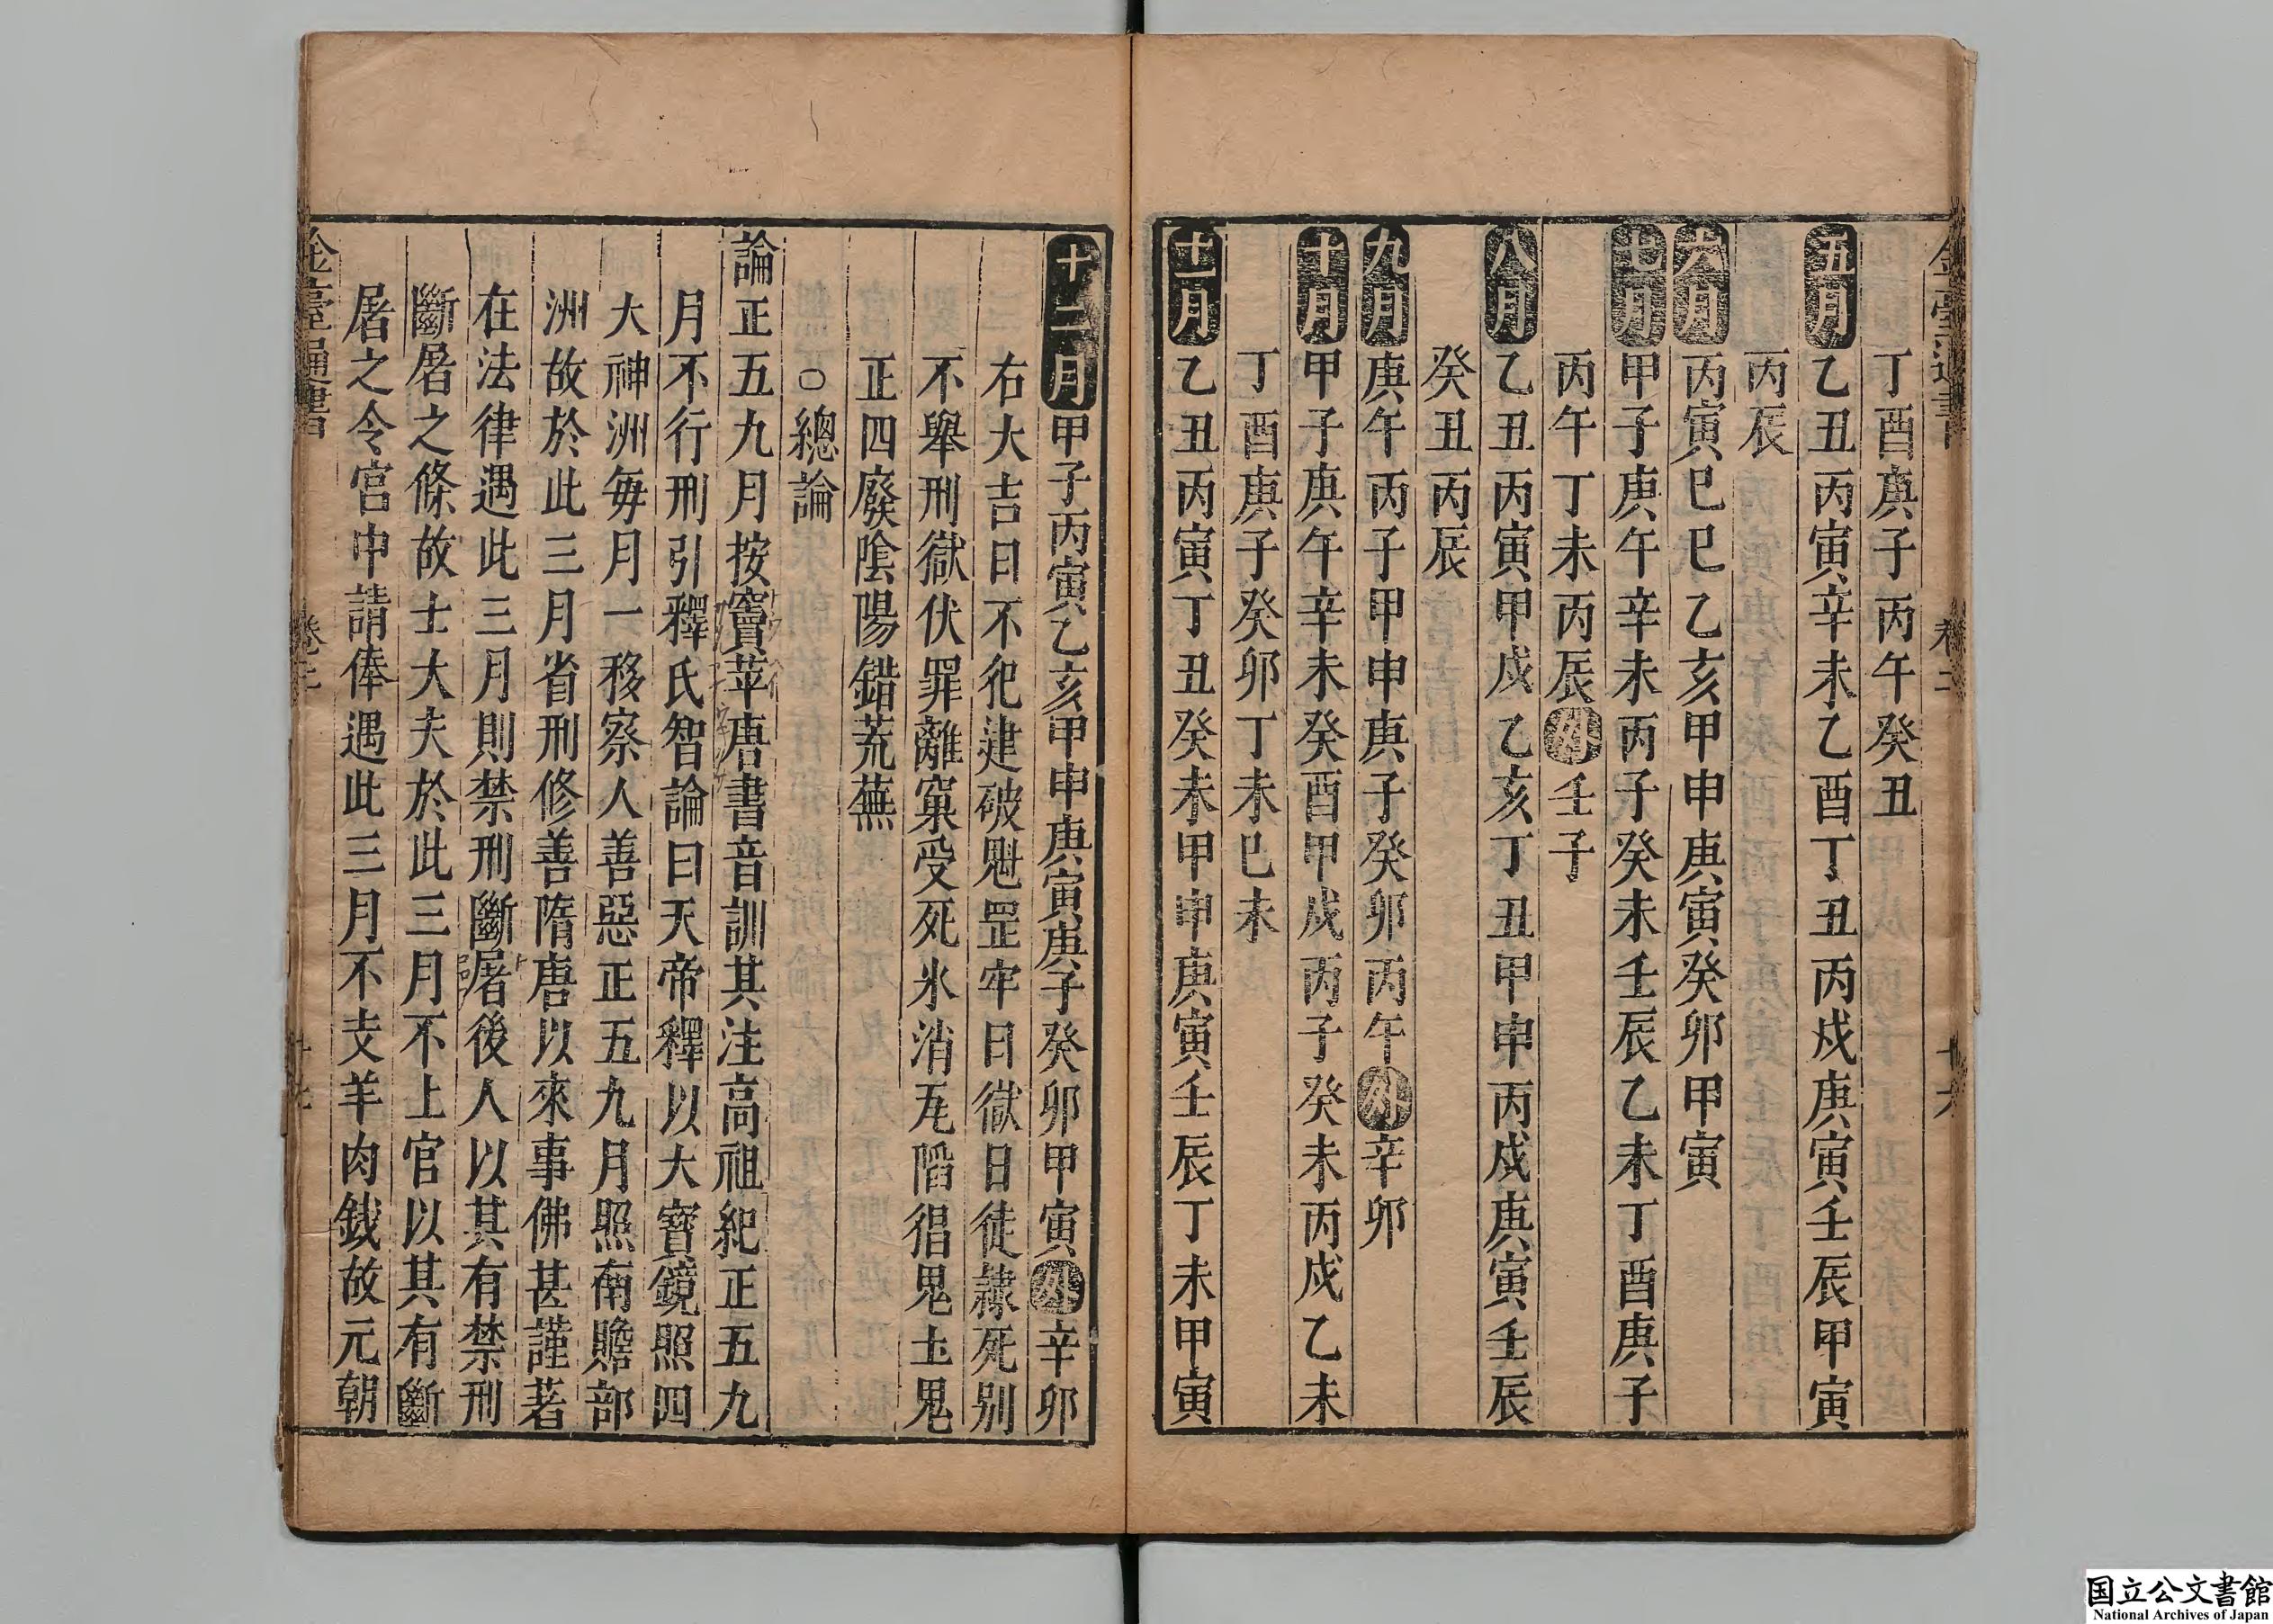 丁酉庚子丙午癸丑
五月乙丑丙寅辛未乙酉丁丑丙戌庚寅壬辰甲寅
丙辰
六月丙寅己巳乙亥甲申庚寅癸卯甲寅
七月甲子庚午辛未丙子癸未壬辰乙未丁酉庚子
丙午丁未丙辰外壬子
八月乙丑丙寅甲戌乙亥丁丑甲申丙戌庚寅壬辰
癸丑丙辰
九月庚午丙子甲申庚子癸卯丙午外辛卯
十月甲子庚午辛未癸酉甲戌丙子癸未丙戌乙未
丁酉庚子癸卯丁未己未
十一月乙丑丙寅丁丑癸未甲申庚寅壬辰丁未甲寅
十二月甲子丙寅乙亥甲申庚寅庚子癸卯甲寅外辛卯
右大吉日不犯建破魁罡牢日獄日徒隷死别
不舉刑獄伏罪離窠受死氷消瓦陷猖鬼土鬼
正四廢陰陽錯荒蕪
○總論
論正五九月按竇苹唐書音訓其注高祖紀正五九
月不行刑引釋氏智論曰天帝釋以大寶鏡照四
大神洲每月一移察人善惡正五九月照南贍部
洲故於此三月省刑修善隋唐以來事佛甚謹著
在法律遇此三月則禁刑斷屠後人以其有禁刑
斷屠之條故士大夫於此三月不上官以其有斷
屠之令官中請俸遇此三月不支羊肉錢故元朝
金臺通書
卷二
金臺通書
卷二
十六
国立公文書館
National Archives of Japan